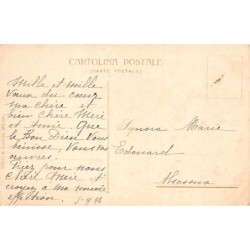 CARTOLINA POSTALE
(CARTE POSTALE)
Mille et mille
Vœux du cœur
ma chère et
bien Chère Mère
et Amie. Que
le Bon Dieu Vous
bénisse, Vous
Priez pour nous
Chère Mère et
croyez à ma
affection.
Signora Marie
Edouard